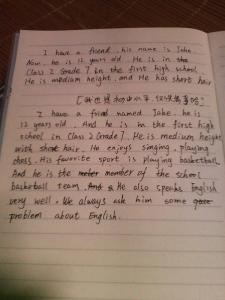 I have a friend. his name is Jake.
Now. he is 12 years old. He is in the
Class 2 Grade 7 in the first high school.
He is medium height. and He has short hair
I have a friend named Jake. he is
12 years old. And he is in the first high
school in Class 2 Grade 7. He is medium height
with short hair. He enjoys singing, playing
chess. His favorite sport is playing basketball.
And he is the member of the school
basketball team. He also speaks English
very well. We always ask him some
problem about English.